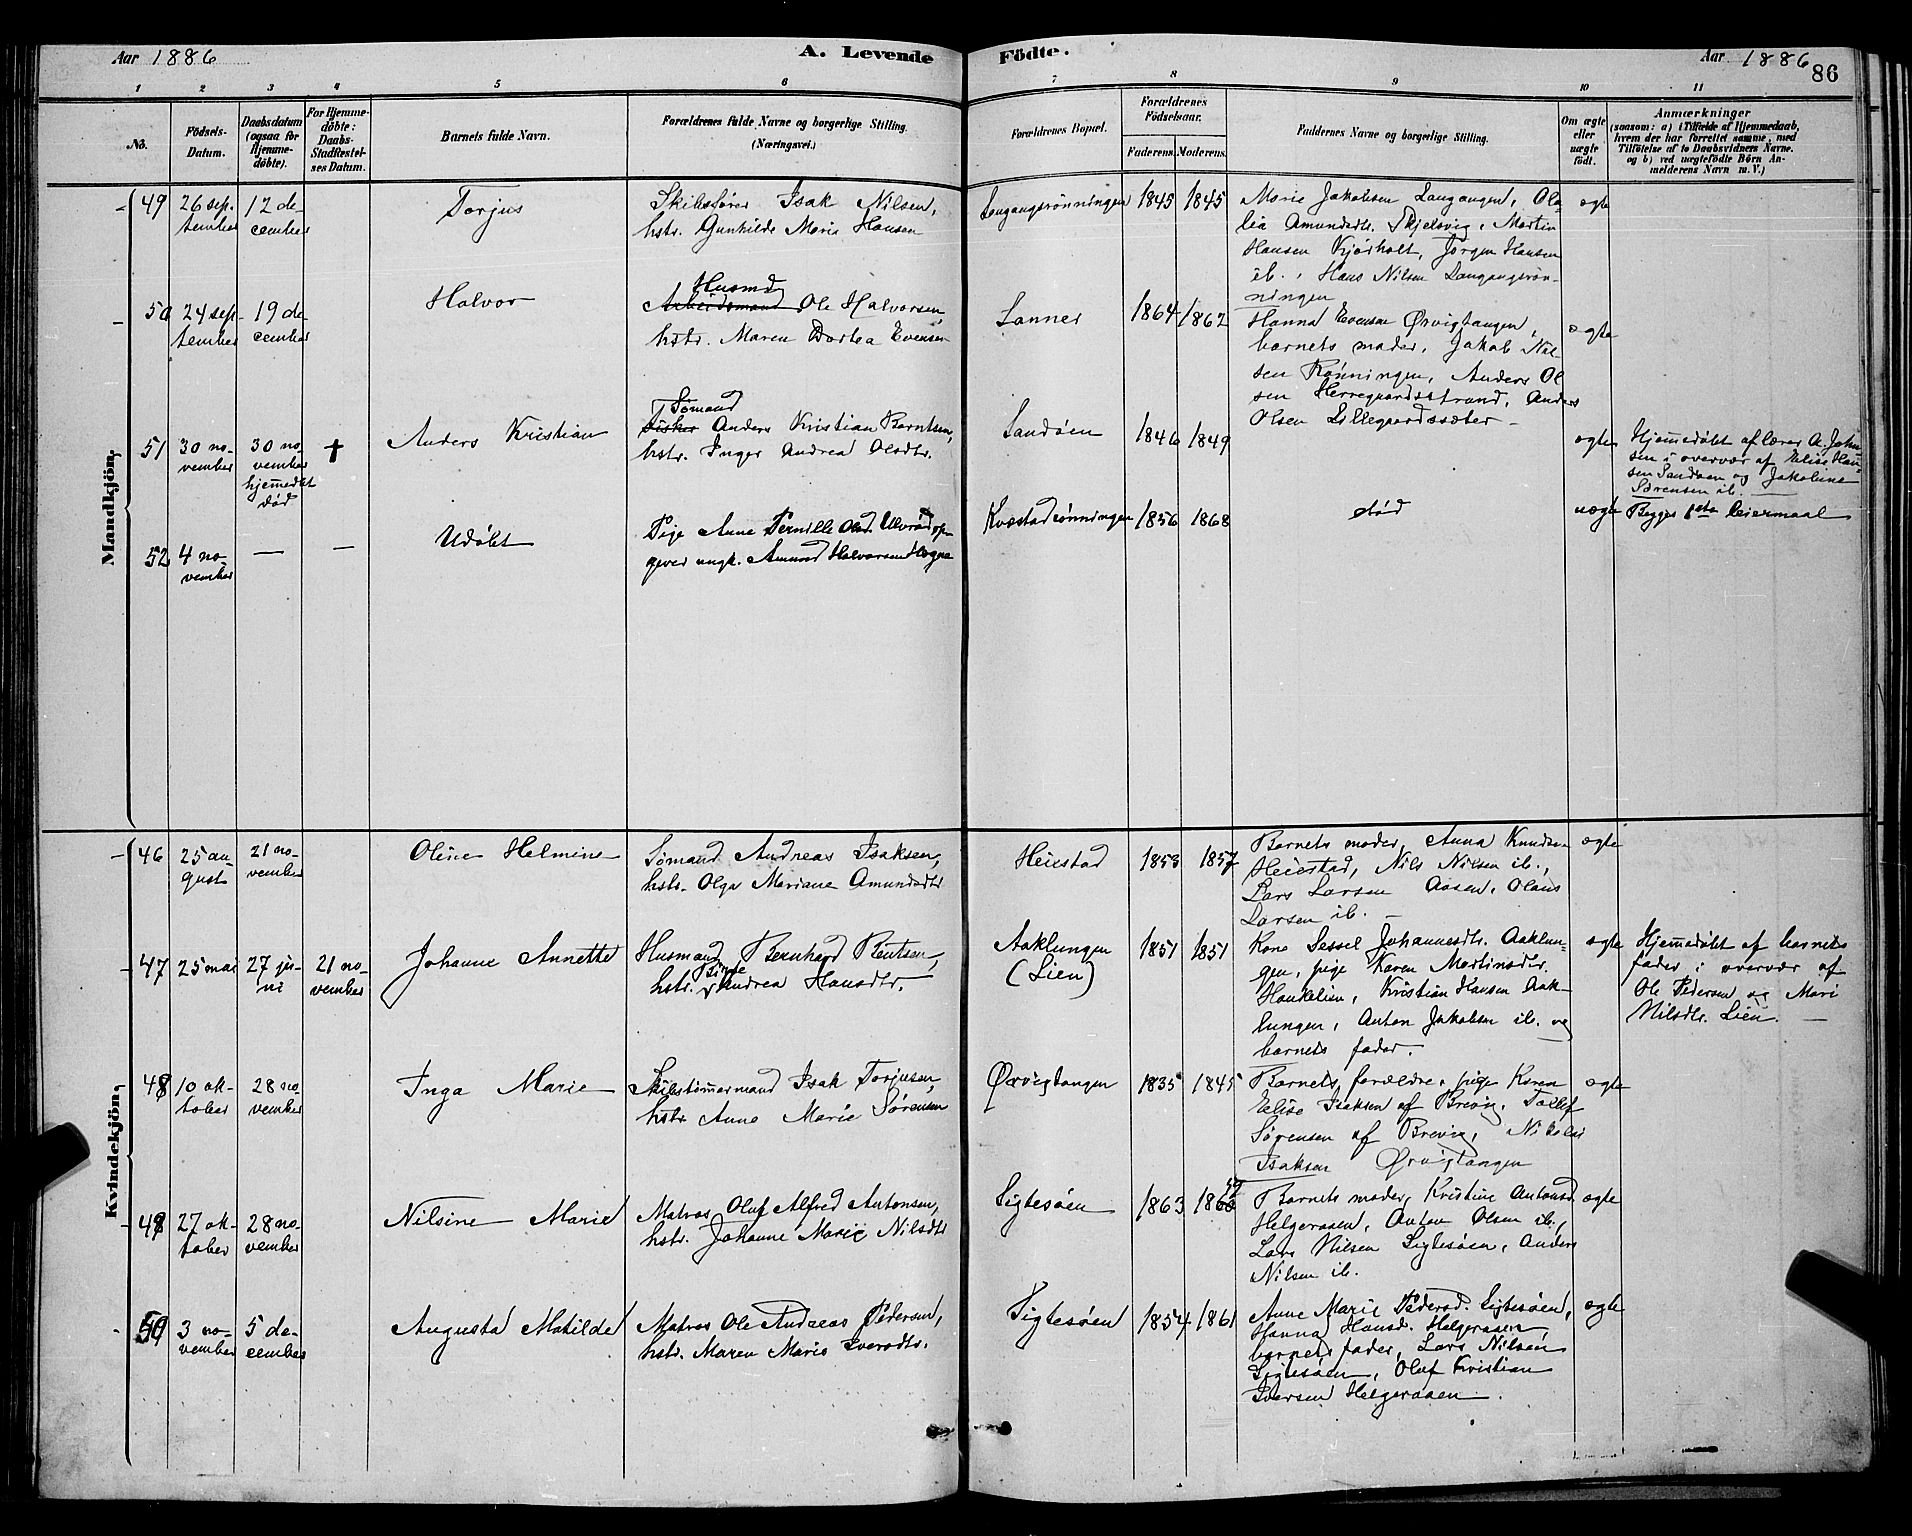 Aar 1886
A. Levende
Födte.
Aar 1886
86
1 2 3 4 5 6 7 8 9 10 11
No.
Födsels-
Datum.
Daabsdatum
(ogsaa for
Hjemme-
döbte).
For Hjemme-
döbte:
Daabs-
Stadfæstel-
ses Datum.
Barnets fulde Navn.
Forældrenes fulde Navne og borgerlige Stilling.
(Næringsvei.)
Forældrenes Bopæl.
Forældrenes
Födselsaar.
Faderens. Moderens.
Faddernes Navne og borgerlige Stilling.
Om ægte
eller
uægte
födt.
Anmærkninger
(saasom: a) i Tilfælde af Hjemmedaab,
hvem der har forrettet samme, med
Tilföielse af to Daabsvidners Navne.
og b) ved uægtefödte Börn An-
melderens Navn m. V.)
Mandkjön,
49
26 sep-
tember
12 de-
cember
Torjus
Skibsfører Isak Nilsen,
hstr. Gunhilde Marie Hansen
Langangsrønningen
1845 1845
Marie Jakobsen Langangen, Ola-
lia Amundsdtr. Skjelsvig, Martin
Hansen Kjørholt, Jørgen Hansen
ib., Hans Nilsen Langangsrøn-
ningen
ægte
50
24 sep-
tember
19 de-
cember
Halvor
Husmd
Arbeidsmand Ole Halvorsen,
hstr. Maren Dortea Evensen
Lanner
1864 1862
Hanna Evensen Ørvigtangen,
barnets moder, Jakob Nil-
sen Rønningen, Anders Ol
sen Herregaardsstrand, Anders
Olsen Lillegaardssæter
ægte
51
30 no-
vember
30 no-
vember
hjemmedøbt
død
†
Anders Kristian
Sømand
Fisker Anders Kristian Berntsen,
hstr. Inger Andrea Olsdtr.
Sandøen
1846 1849
ægte
Hjemmedøbt af lærer A. Johan
sen i overvær af Elise Han-
sen Sandøen og Jakobine
Sørensen ib.
52
4 no-
vember
—
—
Udøbt
Pige Anne Pernille Olsd. Ulvrød op-
giver ungk. Amund Halvorsen Hogna
Kvæstadrønningen
1856 1868
død
uægte
Begges 1ste leiermaal
Kvindekjön,
46
25 au-
gust
21 no-
vember
Oline Helmine
Sømand Andreas Isaksen,
hstr. Olga Mariane Amundsdtr
Heiestad
1853 1857
Barnets moder, Anna Knudsen
Heiestad, Nils Nilsen ib.,
Lars Larsen Aasen, Olaus
Larsen ib.
ægte
47
25 mai
27 ju-
ni
21 no-
vember
Johanne Annette
Husmand Bernhard Bentsen,
hstr. Andrea Hansdtr.
Aaklungen
(Lien)
1851 1851
Kone Sessel Johannesdtr. Aaklun-
gen, pige Karen Martinsdtr.
Haukelien, Kristian Hansen Aak-
lungen, Anton Jakobsen ib. og
barnets fader.
ægte
Hjemmedøbt af barnets
fader i overvær af
Ole Pedersen og Mari
Nilsdtr. Lien.
48
10 ok-
tober
28 no-
vember
Inga Marie
Skibstømmermand Isak Torjusen,
hstr Anne Marie Sørensen
Ørvigtangen
1835 1845
Barnets forældre, pige Karen
Elise Isaksen af Brevig, Tollef
Sørensen af Brevig, Nikolai
Isaksen Ørvigtangen
ægte
49
27 ok-
tober
28 no-
vember
Nilsine Marie
Matros Oluf Alfred Antonsen,
hstr. Johanne Marie Nilsdtr
Sigtesøen
1863
Barnets moder, Kristine Antonsd.
Helgeraaen, Anton Olsen ib.,
Lars Nilsen Sigtesøen, Anders
Nilsen ib.
ægte
50
3 no-
vember
5 de-
cember
Augusta Matilde
Matros Ole Andreas Pedersen,
hstr. Maren Marie Iversdtr.
Sigtesøen
1854 1861
Anne Marie Pedersd. Sigtesøen,
Hanna Hansd. Helgeraaen,
barnets fader, Lars Nilsen
Sigtesøen, Oluf Kristian
Iversen Helgeraaen.
ægte